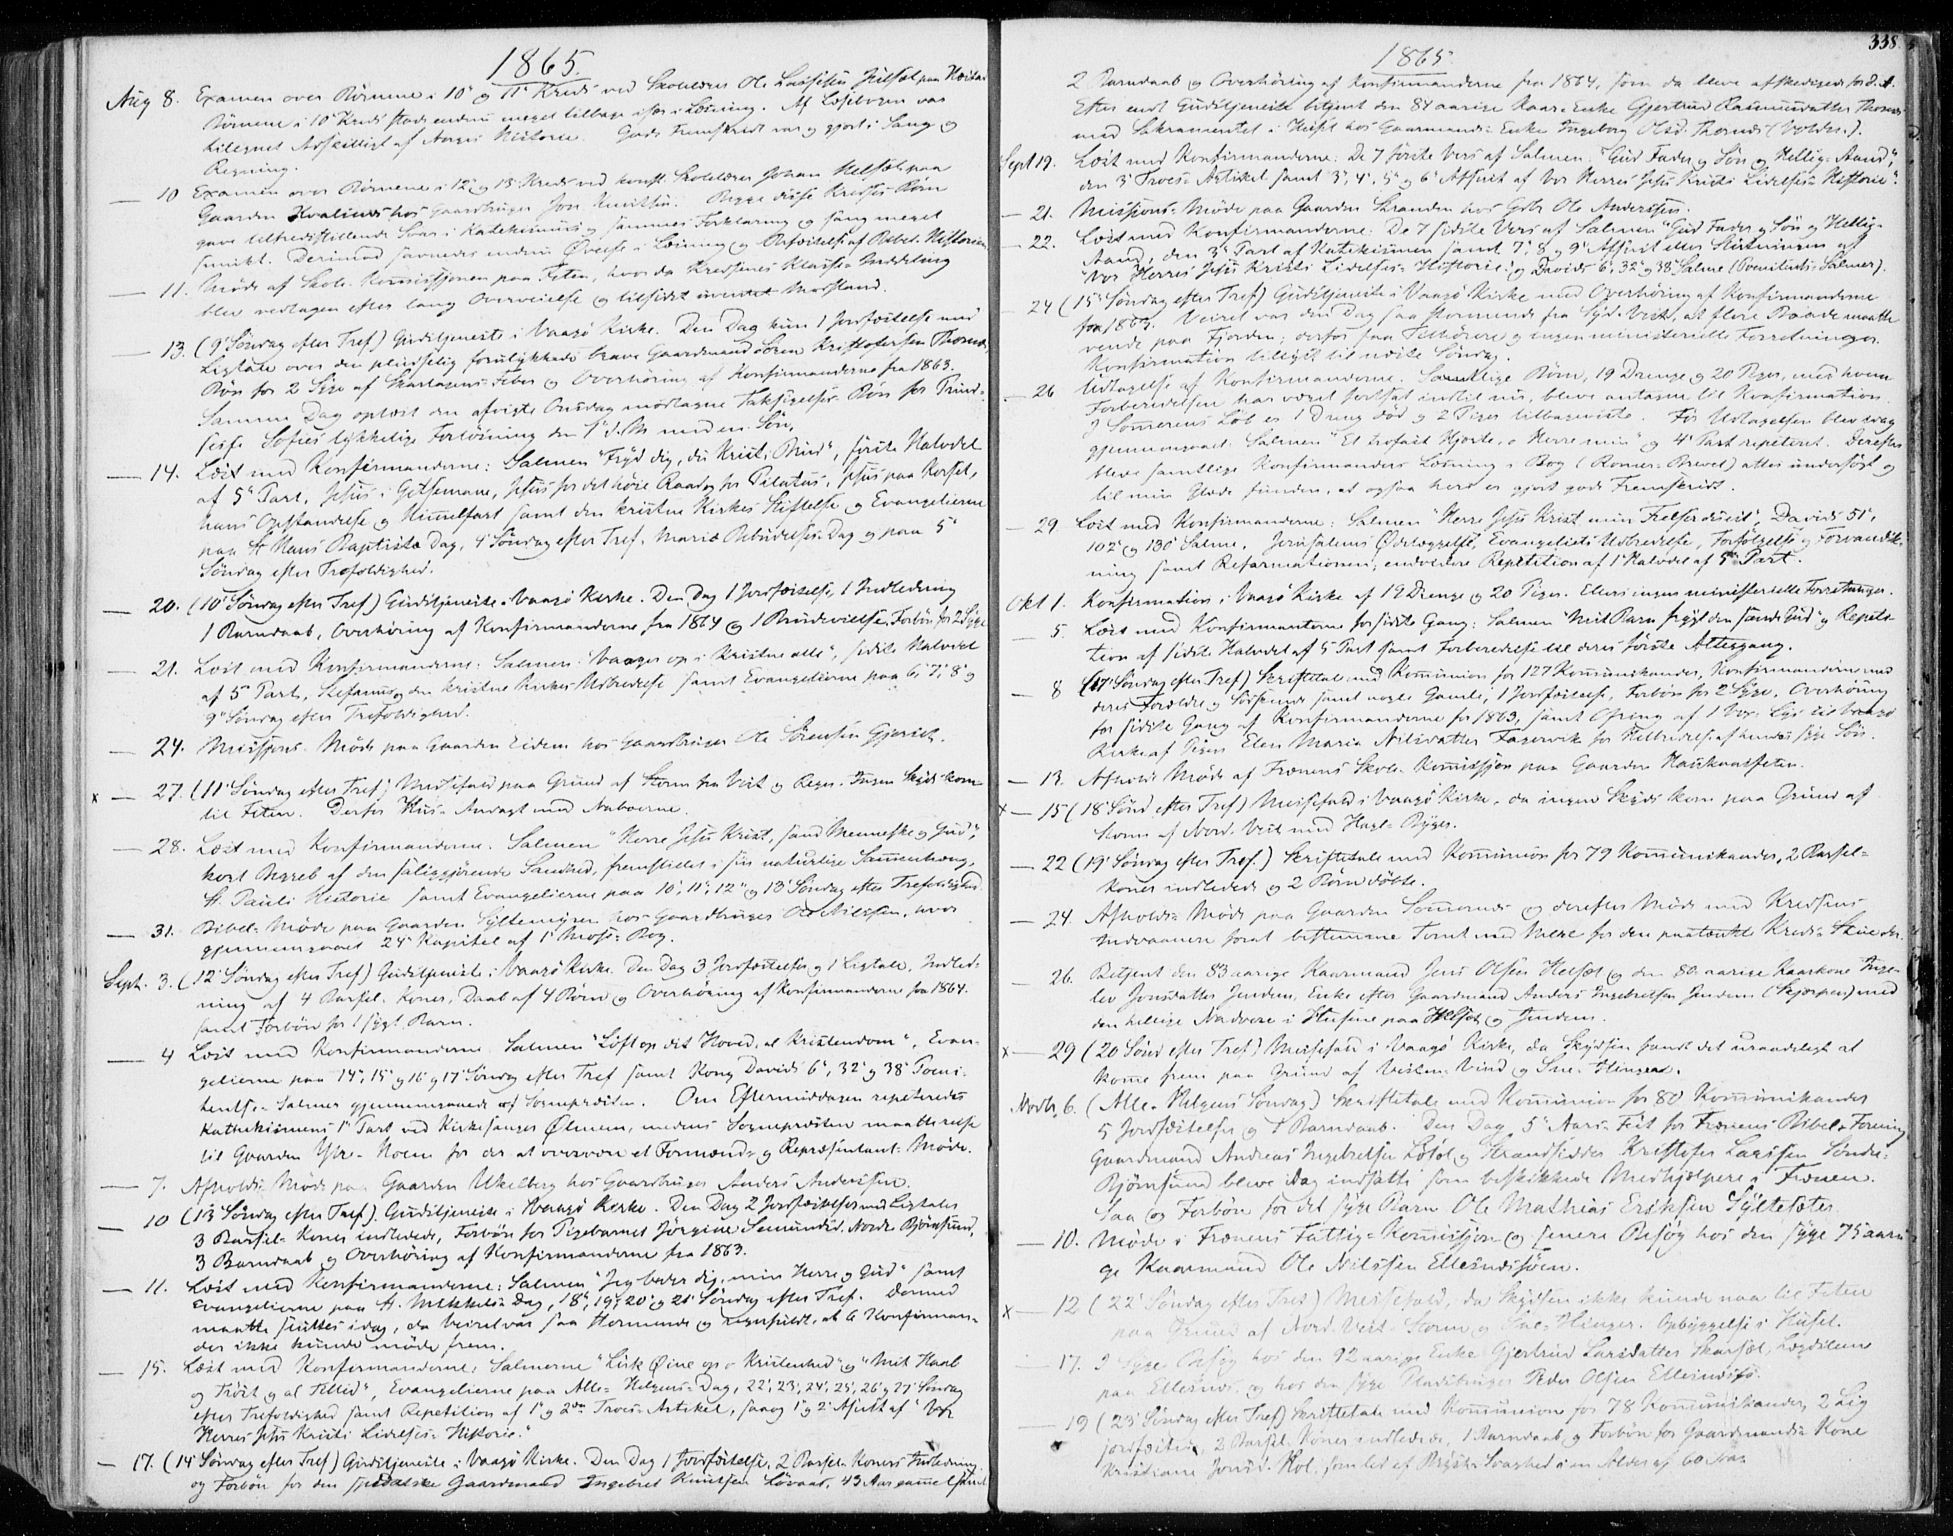 1865.
Aug 8. Examen over Börnene i 10de og 11te Kreds ved Skolelærer Ole Larssen Julset paa Hæstad
Börnene i 10de Kreds stode endnu meget tilbage især i Læsning. Af Læsebogen var
tilegnet Adskilligt af Norges Historie. Gode Fremskridt var og gjort i Sang og
Regning.
— 10 Examen over Börnene i 12te og 13de Kreds ved konst. Skolelærer Johan Helset paa
Gaarden hos Gaardbruger Jon Knutsen. Begge disse Kredses Börn
gave tilfredsstillende Svar i Katekismus og sammes Forklaring og sang meget
smukt. Derimod savnedes endnu Övelse i Læsning og Opfattelse af Bibel-Historien
— 11. Möde af Skole-Kommissjonen paa Feten, hvor da Kredsenes Klasse-Inddeling
blev vedtagen efter lang Overveielse og tilsidst uventet Modstand.
— 13. (9de Söndag efter Tref) Gudstjeneste i Vaagö Kirke. Den Dag kun 1 Jordfæstelse med
Ligtale over den pludselig forulykkede brave Gaardmand Sören Kristofersen Thornes,
Bön for 2 Syge af Skarlagens-Feber og Overhöring af Konfirmanderne fra 1863.
Samme Dag oplæst den afvigte Onsdag modtagne Taksigelses-Bön for Prind-
sesse Sofies lykkelige Forlösning den 1ste d. M. med en Sön.
— 14. Læst med Konfirmanderne: Salmen "Fryd dig, du Kristi Brud", förste Halvdel
af 5te Part, Jesus i Getsemane, Jesus for det höie Raad og for Pilatus, Jesus paa Korset,
hans Opstandelse og Himmelfart samt den kristne Kirkes Stiftelse og Evangelierne
paa St Hans Baptistæ Dag, 4de Söndag efter Tref, Mariæ Besögelses-Dag og paa 5te
Söndag efter Trefoldighed.
— 20. (10de Söndag efter Tref) Gudstjeneste i Vaagö Kirke. Den Dag 1 Jordfæstelse, 1 Indledning
1 Barndaab, Overhöring af Konfirmanderne fra 1864 og 1 Brudevielse, Forbön for 2 Syge
— 21. Læst med Konfirmanderne: Salmen: "Vaager op i Kristne alle", sidste Halvdel
af 5te Part, Stefanus og den kristne Kirkes Udbredelse samt Evangelierne paa 6te, 7de, 8de og
9de Söndag efter Trefoldighed.
— 24. Missjons-Möde paa Gaarden Eidem hos Gaardbruger Ole Sörensen Gjerset.
x — 27. (11te Söndag efter Tref) Messefald paa Grund af Storm fra Vest og Regn. Ingen Skyds kom
til Feten. Derfor Hus-Andagt med Naboerne.
— 28. Læst med Konfirmanderne. Salmen "Herre Jesu Krist, sand Menneske og Gud",
kort Begreb af den saliggjörende Sandhed, fremstillet i sin naturlige Sammenhæng,
St. Pauli Historie samt Evangelierne paa 10de, 11te, 12te og 13de Söndag efter Trefoldighed.
— 31. Bibel-Möde paa Gaarden Syltemyren hos Gaardbruger Ole Nilssen, hvor
gjennemgaaet 24de Kapitel af 1ste Mose-Bog.
Sept. 3. (12te Söndag efter Tref) Gudstjeneste i Vaagö Kirke. Den Dag 3 Jordfæstelser og 1 Ligtale, Indled-
ning af 4 Barsel-Koner, Daab af 4 Börn og Overhöring af Konfirmanderne fra 1864.
samt Forbön for 1 sygt Barn.
— 4 Læst med Konfirmanderne Salmen "Löft op dit Hoved, al Kristendom", Evan-
gelierne paa 14de, 15de og 16de og 17de Söndag efter Tref samt Kong Davids 6te, 32te og 38te Poeni-
tentse-Salmer gjennemgaaede af Sognepræsten. Om Eftermiddagen repeteredes
Katekismens 1ste Part ved Kirkesanger Ölmem, medens Sognepræsten maatte reise
til Gaarden Ytre-Hoem for der at overvære et Formands- og Repræsentant-Möde.
— 7. Afholds-Möde paa Gaarden Ukelberg hos Gaardbruger Anders Andersen.
— 10 (13de Söndag efter Tref). Gudstjeneste i Vaagö Kirke. Den Dag 2 Jordfæstelser med Ligtaler
3 Barsel-Koner indledede, Forbön for Pigebarnet Jörgine Semundsd. Nordre Björnsund,
3 Barndaab og Overhöring af Konfirmanderne fra 1863.
— 11. Læst med Konfirmanderne: Salmen "Jeg beder dig, min Herre og Gud" samt
Evangelierne paa St. Mikkels Dag, 18de, 19de, 20de og 21de Söndag efter Tref. Dermed
maatte sluttes idag, da Veiret var saa stormende og regnfuldt, at 6 Konfirman-
der ikke kunde möde frem.
— 15. Læst med Konfirmanderne, Salmerne "Luk Öine op o Kristenhed" og "Mit Haab
og Tröst og al Tillid", Evangelierne paa Alle-Helgens-Dag, 22de, 23de, 24de, 25de, 26de og 27de Söndag
efter Trefoldighed samt Repetition af 1ste og 2den Troes-Artikel, saa og 1ste og 2det Afsnit af "Vor
Herres Jesu Kristi Lidelses-Historie."
— 17. (14de Söndag efter Tref) Gudstjeneste i Vaagö Kirke. Den Dag 1 Jordfæstelse, 2 Barsel-Koners Indledning
og Forbön for den spedalske Gaardmand Ingebret Knutsen Lövaas, 43 Aar gammel samt
338
1865.
2 Barndaab og Overhöring af Konfirmanderne fra 1864, som da bleve afskedigede for d. A.
Efter endt Gudstjeneste betjent den 84 aarige Kaar-Enke Gjertrud Rasmusdatter Thornes
med Sakramentet i Huset hos Gaardmands-Enke Ingeborg Olsd. Thornes (Volden).
Sept 19. Læst med Konfirmanderne: De 7 förste Vers af Salmen "Gud Fader og Sön og Hellig-Aand",
den 3die Troes-Artikel samt 3die, 4de, 5te og 6te Afsnit af Vor Herres Jesu Kristi Lidelses-Historie".
— 21. Missjons-Möde paa Gaarden Stranden hos Gdbr Ole Anderssen.
— 22. Læst med Konfirmanderne: De 7 sidste Vers af Salmen "Gud Fader og Sön og Hellig-
Aand, den 3die Part af Katekismen samt 7de, 8de og 9de Afsnit eller Slutningen af
"Vor Herres Jesu Kristi Lidelses-Historie" og Davids 6te, 32te og 38te Salme (Poenitents-Salmer).
— 24 (15de Söndag efter Tref) Gudstjeneste i Vaagö Kirke med Overhöring af Konfirmanderne
fra 1863. Veiret var den Dag saa stormende fra Syd-Vest, at flere Baade maatte
vende paa Fjorden; derfor faa Tilhörere og ingen ministerielle Forretninger.
Konfirmation tillyst til næste Söndag.
— 26 Udtagelse af Konfirmanderne. Samtlige Börn, 19 Drenge og 20 Piger, med hvem
Forberedelsen har været fortsat indtil nu, bleve antagne til Konfirmation.
I Sommerens Löb er 1 Dreng död og 2 Piger tilbageviste. För Udtagelsen blev idag
gjennemgaaet: Salmen "Et trofast Hjerte, o Herre min" og 4de Part repeteret. Derefter
bleve samtlige Konfirmanders Læsning i Bog (Romer-Brevet) atter undersögt og
til min Glæde funden, at ogsaa heri er gjort gode Fremskridt.
— 29 Læst med Konfirmanderne: Salmen "Herre Jesu Krist min Frelser du est", Davids 51de,
102de og 130de Salme, Jerusalems Ödelæggelse, Evangeliets Udbredelse, Forfölgelse og Forvansk-
ning samt Reformationen; endvidere Repetition af 1ste Halvdel af 5te Part.
Okt 1. Konfirmation i Vaagö Kirke af 19 Drenge og 20 Piger. Ellers ingen ministerielle Forretninger.
— 5. Læst med Konfirmanterne for sidste Gang: Salmen "Mit Barn frygt den sande Gud" og Repeti-
tion af sidste Halvdel af 5te Part samt Forberedelse til deres förste Altergang.
— 8 (17de Söndag efter Tref) Skriftetale med Kommunion for 127 Kommunikander, Konfirmanderne med
deres Forældre og Södskende samt nogle Gamle, 1 Jordfæstelse, Forbön for 2 Syge, Overhöring
for sidste Gang af Konfirmanderne fra 1863, samt Ofring af 1 Vox-Lys til Vaagö
Kirke af Pigen Elen Maria Nilsdatter Fagervik for Helbredelse af hendes syge Söster.
— 13. Afholdt Möde af Frænens Skole-Kommissjon paa Gaarden Hauskaasfeten.
x — 15 (18de Sönd efter Tref) Messefald i Vaagö Kirke, da ingen Skyds kom paa Grund af
Storm af Nord-Vest med Hagl-Byger.
— 22 (19de Söndag efter Tref.) Skriftetale med Kommunion for 79 Kommunikander, 2 Barsel-
koner indledede og 2 Börn döbte.
— 24. Afholds-Möde paa Gaarden Sommernes og derefter Möde med Kredsens
Indvaanere for at bestemme Tomt for den paatænkte Kreds-Stue der.
— 26. Betjent den 83 aarige Kaarmand Jens Olsen Helset og den 80 aarige Kaarkone Inge-
lev Jonsdatter Jendem, Enke efter Gaardmand Anders Ingebretsen Jendem (Skjorpen) med
den hellige Nadvere i Husene paa Helset og Jendem.
x — 29 (20de Sönd efter Tref) Messefald i Vaagö Kirke, da Skydsen fandt det uraadeligt at
komme frem paa Grund af Vesten-Vind og Sne-Hlinger.
Novbr, 6. (Alle-Helgens Söndag) Skriftetale med Kommunion for 80 Kommunikander
5 Jordfæstelser og 1 Barndaab. Den Dag 5te Aars-Fest for Frænens Bibel-Forening
Gaardmand Andreas Ingebretsen Löset og Strandsidder Kristofer Larssen Söndre-
Björnsund bleve idag indsatte som beskikkede Medhjælpere i Frænen.
Saa og Forbön for det syge Barn Ole Mathias Eriksen Syltesæter.
— 10. Möde i Frænens Fattig-Kommissjon og senere Besög hos den syge 75 aari-
ge Kaarmand Ole Nilssen Ellesnessöen.
x — 12 (22de Söndag efter Tref) Messefald, da Skydsen ikke kunde naa til Feten
paa Grund af Nord-Vest-Storm og Sne-Hlinger. Opbyggelse i Huset.
17. I Syge-Besög hos den 92 aarige Enke Gjertrud Larsdatter Skarset, Lægdslem
paa Ellesnes, og hos den syge Pladsbruger Peder Olsen Ellesnes.
— 19 (23de Söndag efter Tref) Skriftetale med Kommunion for 78 Kommunikander, 2 Lig
jordfæstede, 2 Barsel-Koner indledede, 1 Barndaab og Forbön for Gaardmands-Kone
Kristiane Jonsd. Hol, som led af Bryst-Svaghed i en Alder af 60 Aar